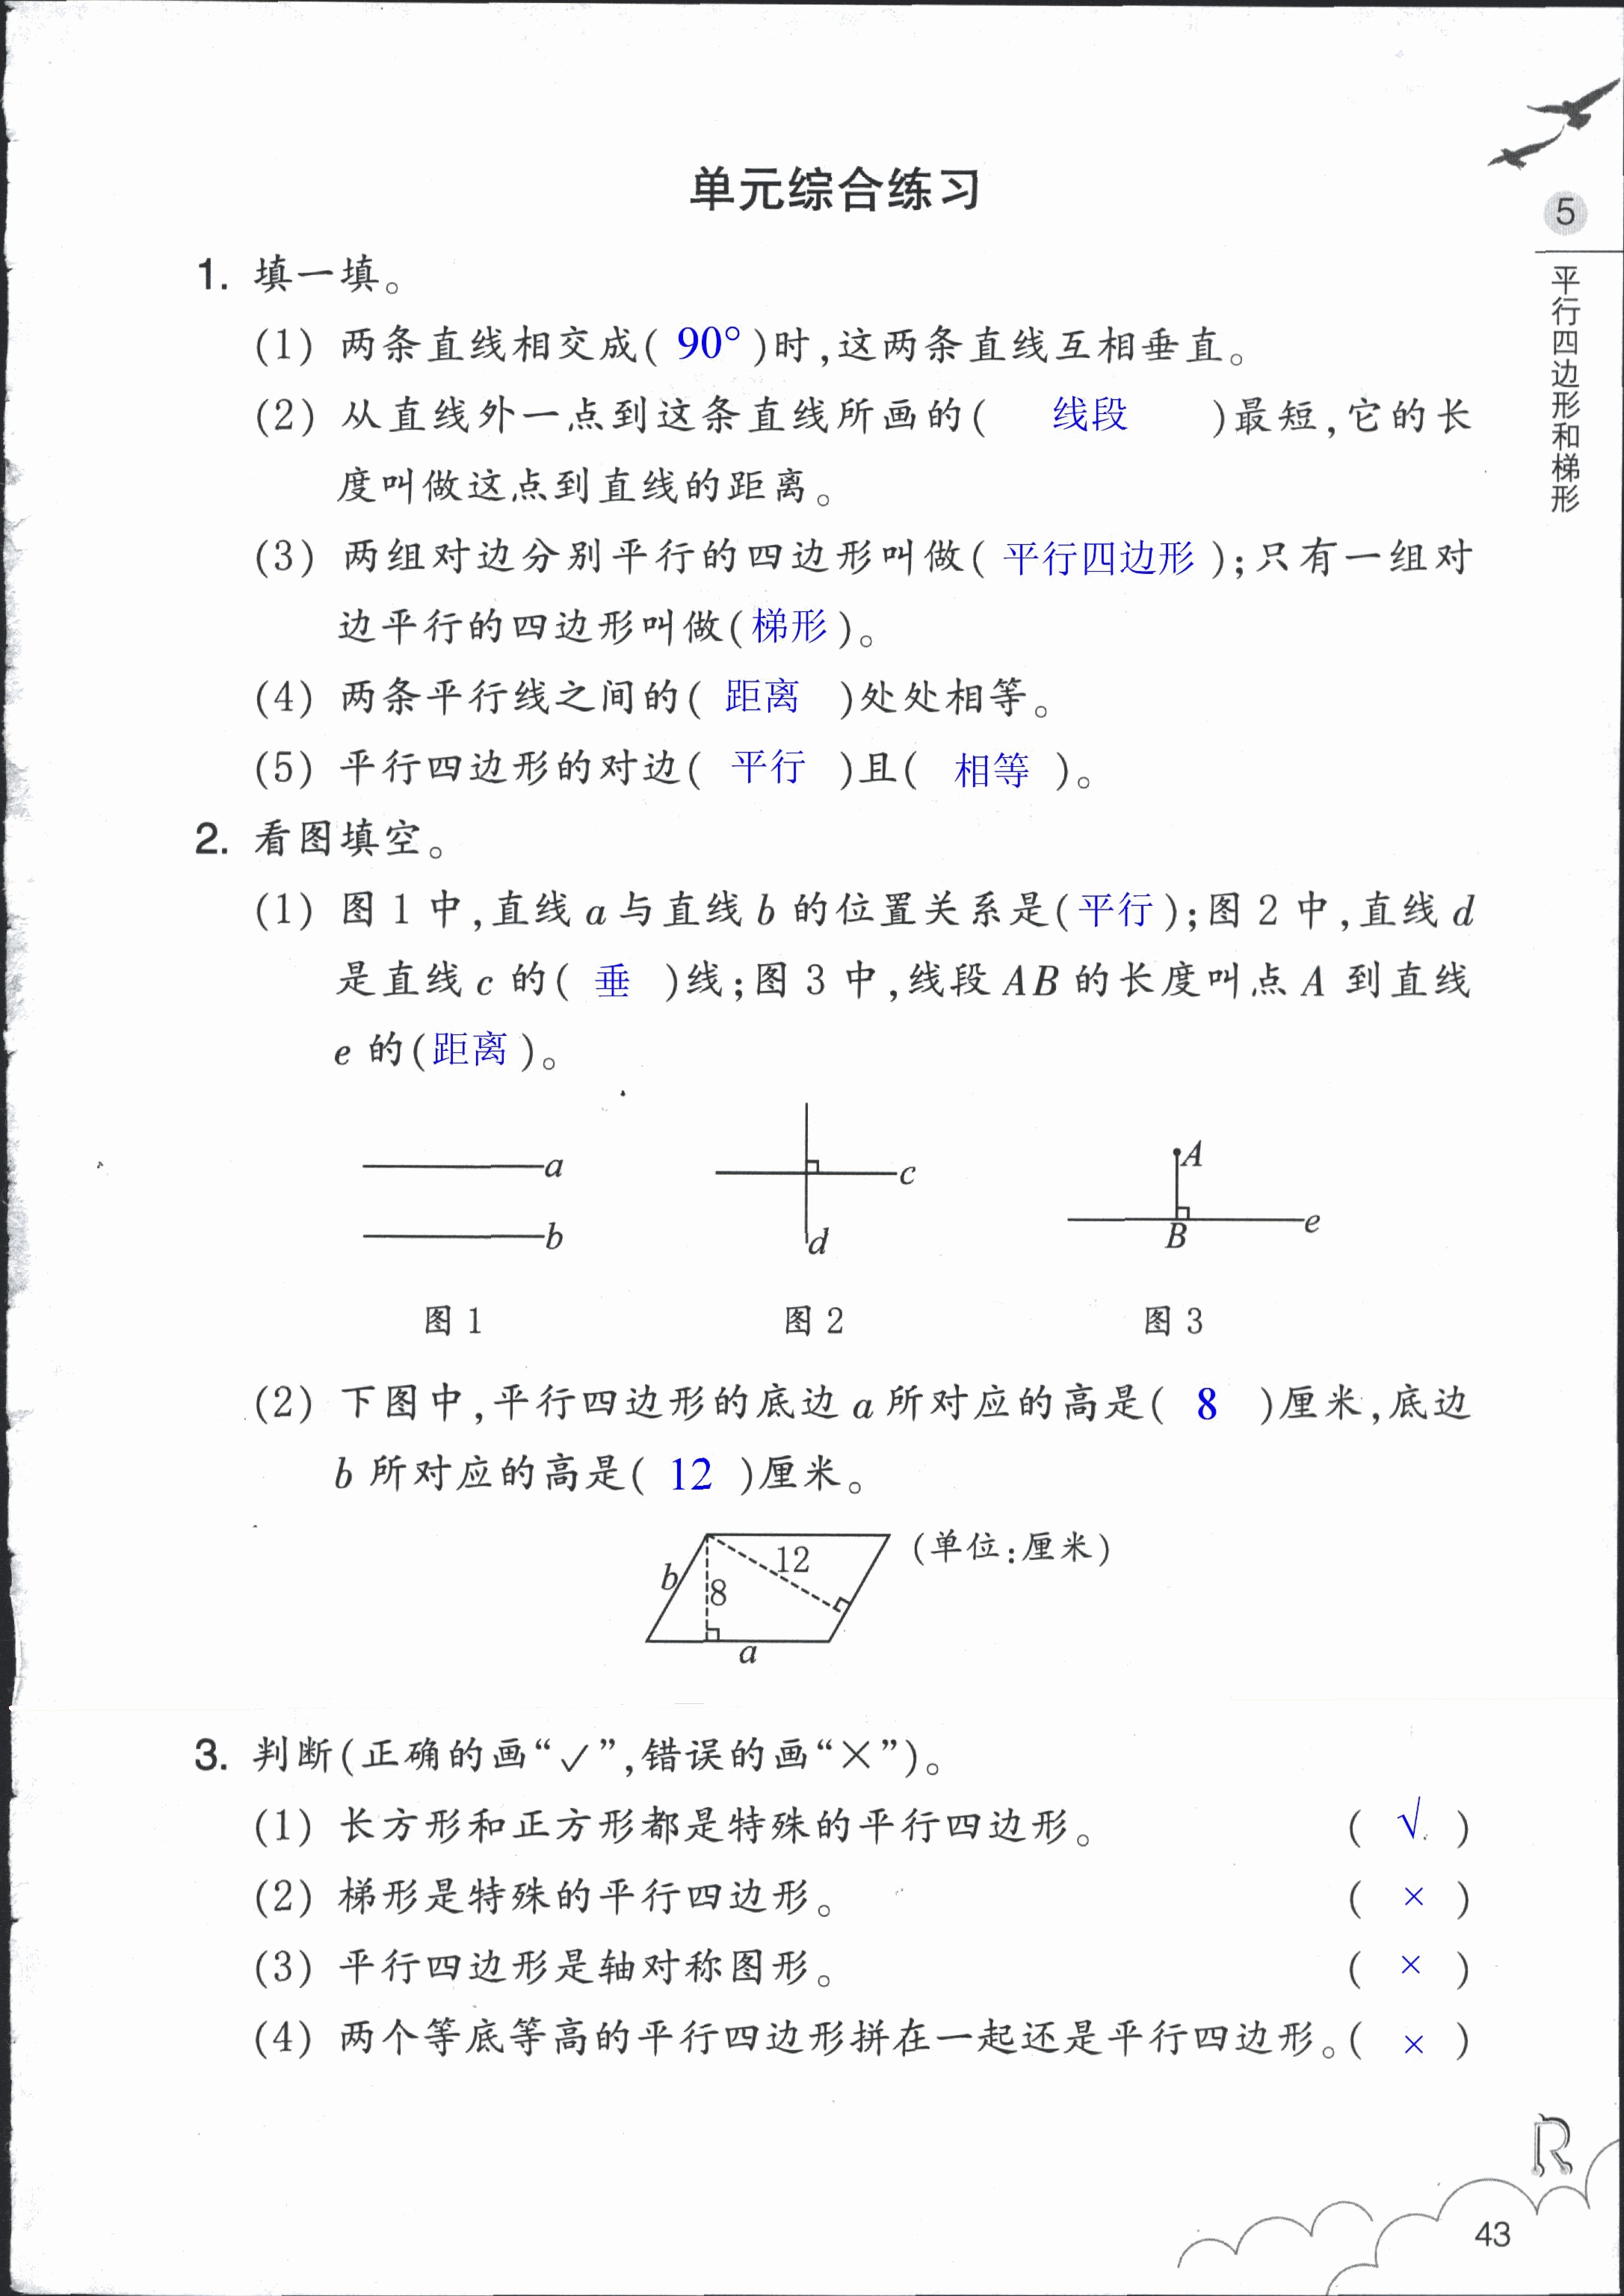 单元综合练习
5
平行四边形和梯形
1. 填一填。
(1) 两条直线相交成( 90° )时,这两条直线互相垂直。
(2) 从直线外一点到这条直线所画的( 线段 )最短,它的长
度叫做这点到直线的距离。
(3) 两组对边分别平行的四边形叫做( 平行四边形 );只有一组对
边平行的四边形叫做(梯形)。
(4) 两条平行线之间的( 距离 )处处相等。
(5) 平行四边形的对边( 平行 )且( 相等 )。
2. 看图填空。
(1) 图 1 中,直线 a 与直线 b 的位置关系是(平行);图 2 中,直线 d
是直线 c 的( 垂 )线;图 3 中,线段 AB 的长度叫点 A 到直线
e 的(距离)。
a
b
c
d
A
B
e
图 1 图 2 图 3
(2) 下图中,平行四边形的底边 a 所对应的高是( 8 )厘米,底边
b 所对应的高是( 12 )厘米。
(单位:厘米)
12
b
8
a
3. 判断(正确的画“✓”,错误的画“×”)。
(1) 长方形和正方形都是特殊的平行四边形。 ( √ )
(2) 梯形是特殊的平行四边形。 ( × )
(3) 平行四边形是轴对称图形。 ( × )
(4) 两个等底等高的平行四边形拼在一起还是平行四边形。( × )
R
43